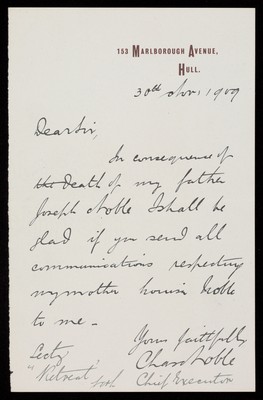 153 MARLBOROUGH AVENUE,
HULL.
30th Nov. 1909
Dear Sir,
In consequence of
the Death of my father
Joseph Noble I shall be
glad if you send all
communications respecting
my mother Louisa Noble
to me -
Yours faithfully
Chas Noble
Chief Executor
Secty
"Retreat" York